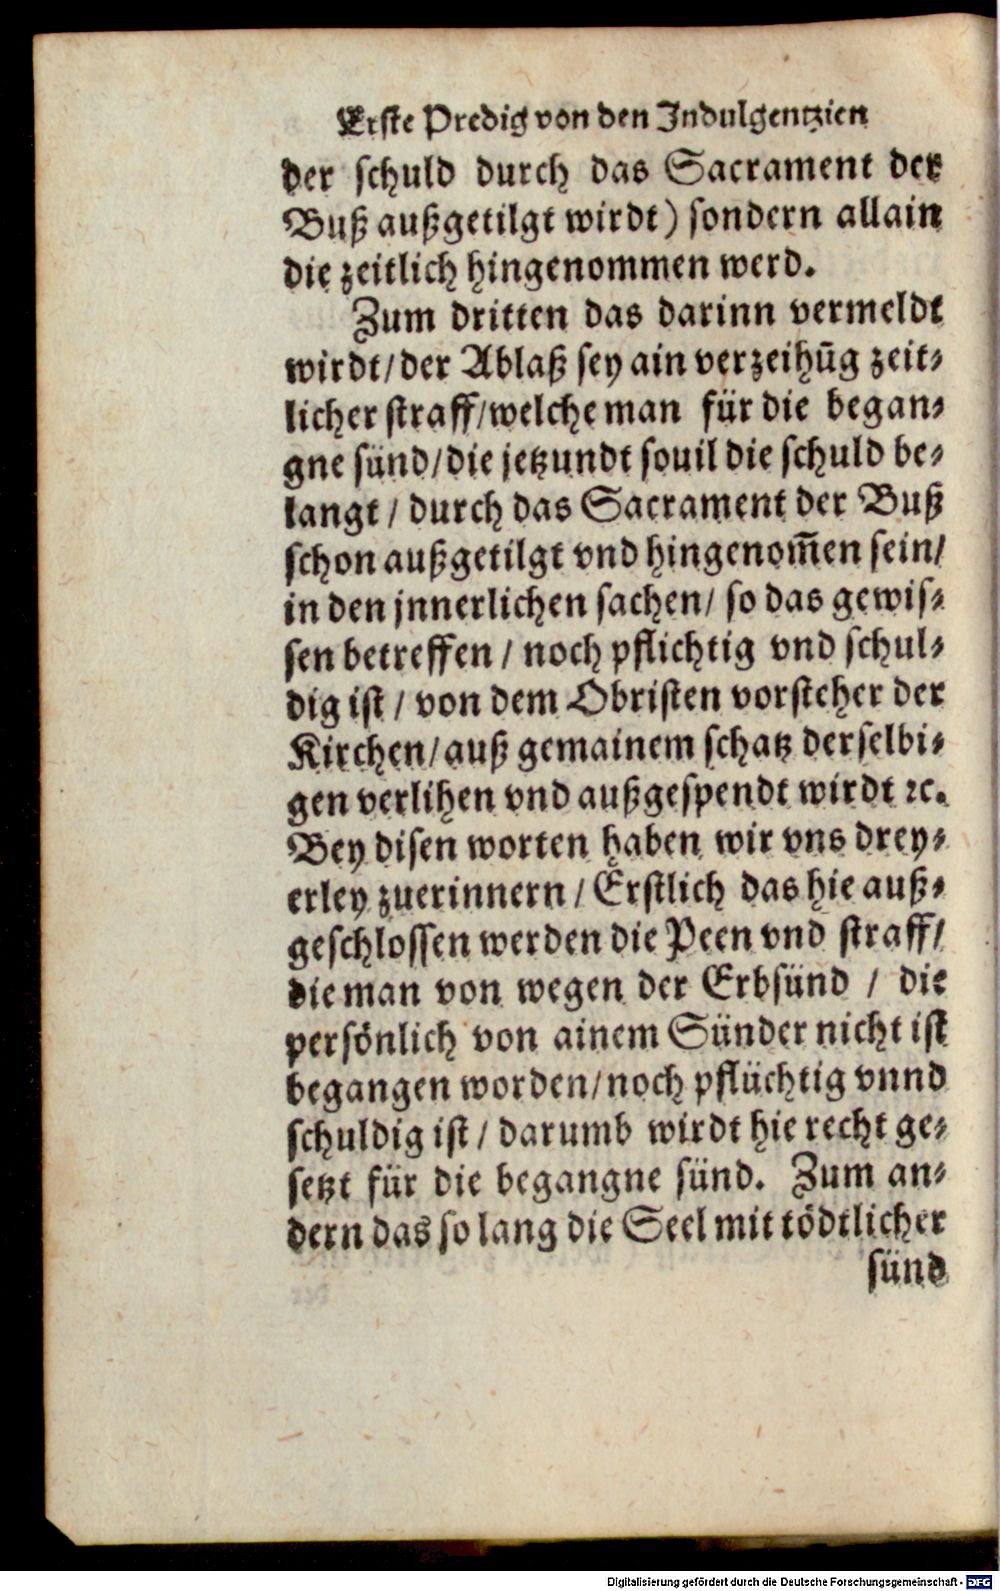 Erste Predig von den Indulgentzien
der schuld durch das Sacrament der
Buß außgetilgt wirdt) sondern allain
die zeitlich hingenommen werd.
Zum dritten das darinn vermeldt
wirdt/der Ablaß sey ain verzeihūg zeit⸗
licher straff/welche man für die began⸗
gne sünd/die jetzundt souil die schuld be⸗
langt / durch das Sacrament der Buß
schon außgetilgt vnd hingenom̄en sein/
in den jnnerlichen sachen/ so das gewis⸗
sen betreffen / noch pflichtig vnd schul⸗
dig ist / von dem Obristen vorsteher der
Kirchen/auß gemainem schatz derselbi⸗
gen verlihen vnd außgespendt wirdt ꝛc.
Bey disen worten haben wir vns drey⸗
erley zuerinnern / Erstlich das hie auß⸗
geschlossen werden die Peen vnd straff/
die man von wegen der Erbsünd / die
persönlich von ainem Sünder nicht ist
begangen worden/noch pflüchtig vnnd
schuldig ist / darumb wirdt hie recht ge⸗
setzt für die begangne sünd. Zum an⸗
dern das so lang die Seel mit tödtlicher
sünd
Digitalisierung gefördert durch die Deutsche Forschungsgemeinschaft - DFG